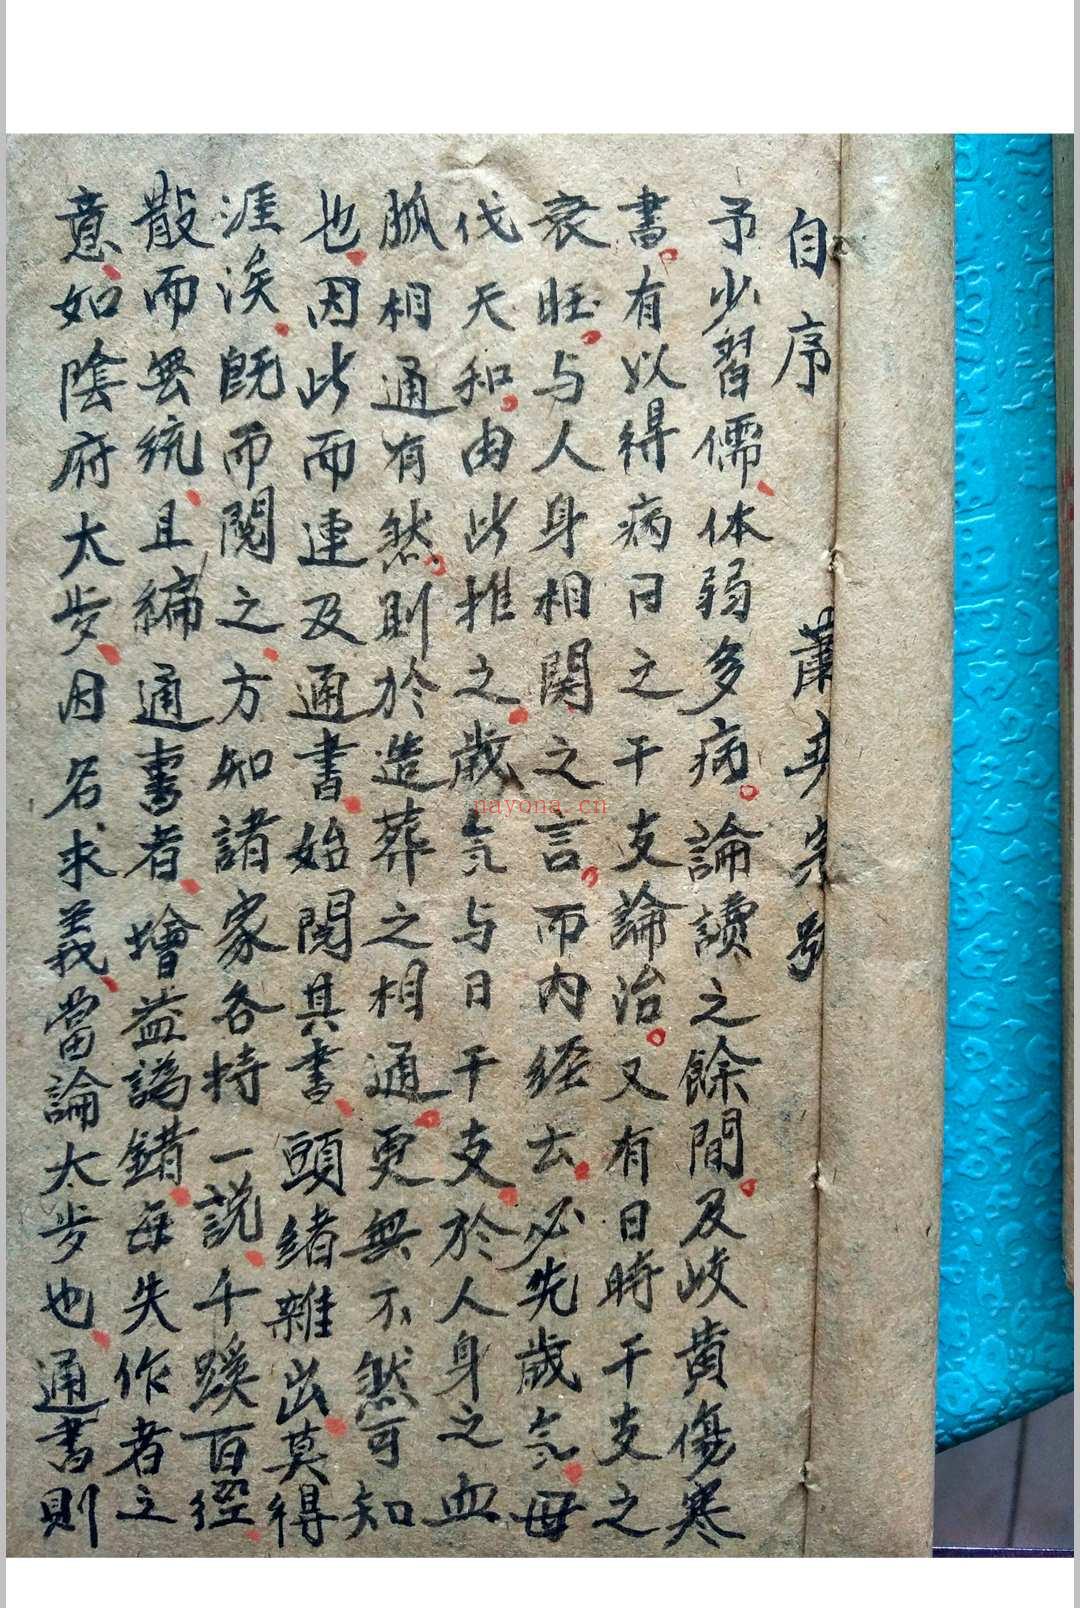 自序
予少習儒体弱多病論讀之餘間及岐黄傷寒
書有以得病日之干支論治又有日時干支之
衰旺与人身相関之言而内経云必先歲氣毋
伐天和由此推之歲氣与日干支於人身之血
脈相通有然則於造葬之相通更無不然可知
也因此而連及通書始閱其書頭緒雜出莫得
涯涘既而閱之方知諸家各持一説千蹊百徑
散而無统且編通書者增益譌錯每失作者之
意如陰府太步因名求義當論太步也通書則
nayona.cn